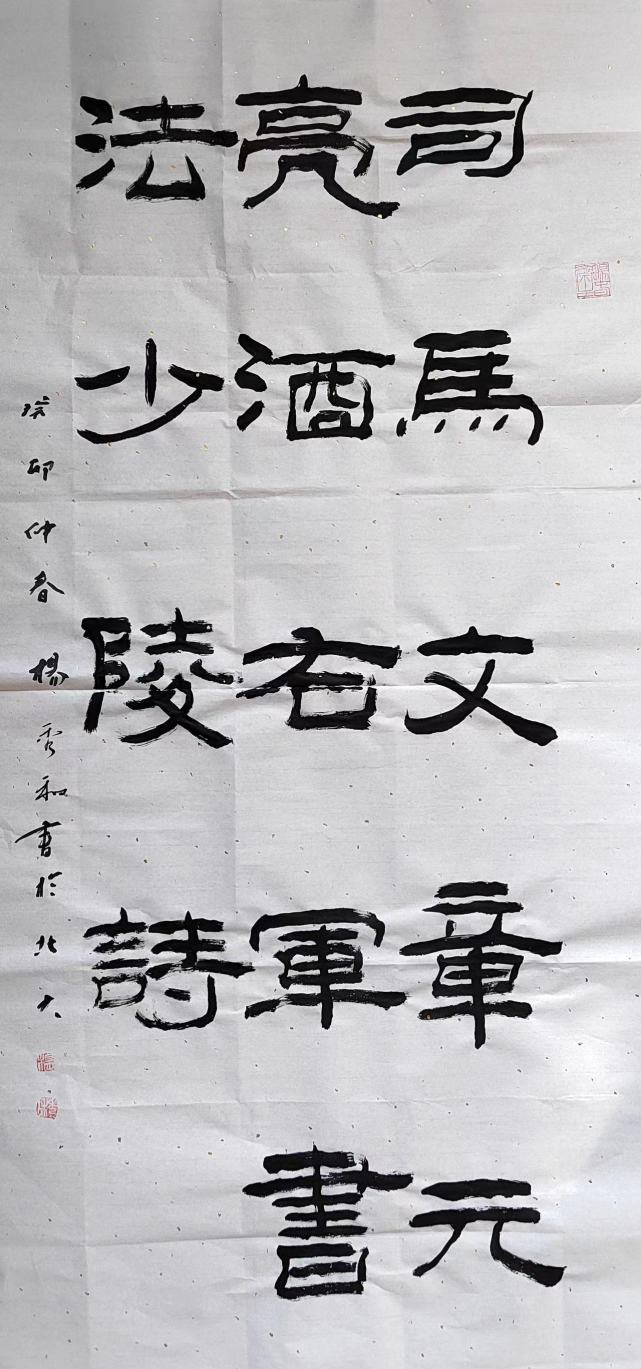 司馬文章元
亮酒右軍書
法少陵詩
癸卯仲春楊秀和書於北大